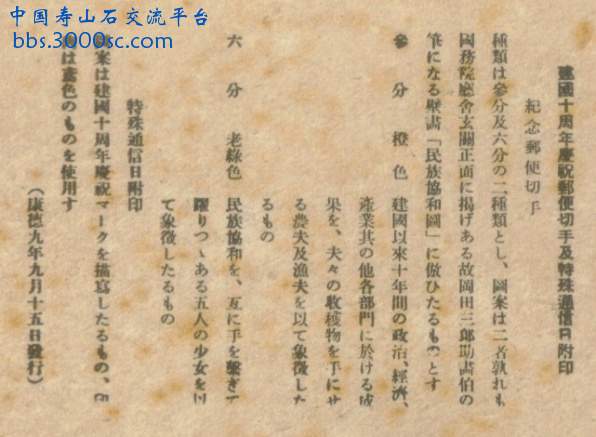 中国寿山石交流平台
bbs.3000sc.com
建國十周年慶祝郵便切手及特殊通信日附印
紀念郵便切手
種類は參分及六分の二種類とし、圖案は二者孰れも
國務院廳舍玄關正面に揭げある故岡田三郎助畫伯の
筆になる壁畫「民族協和圖」に倣ひたるものとす
參分 橙色 建國以來十年間の政治、經濟、
產業其の他各部門に於ける成
果を、夫々の收穫物を手にせ
る農夫及漁夫を以て象徵した
るもの
六分 老綠色 民族協和を、互に手を繫ぎて
躍りつゝある五人の少女を以
て象徵したるもの
特殊通信日附印
圖案は建國十周年慶祝マークを描寫したるもの、印
は鳶色のものを使用す
(康德九年九月十五日發行)